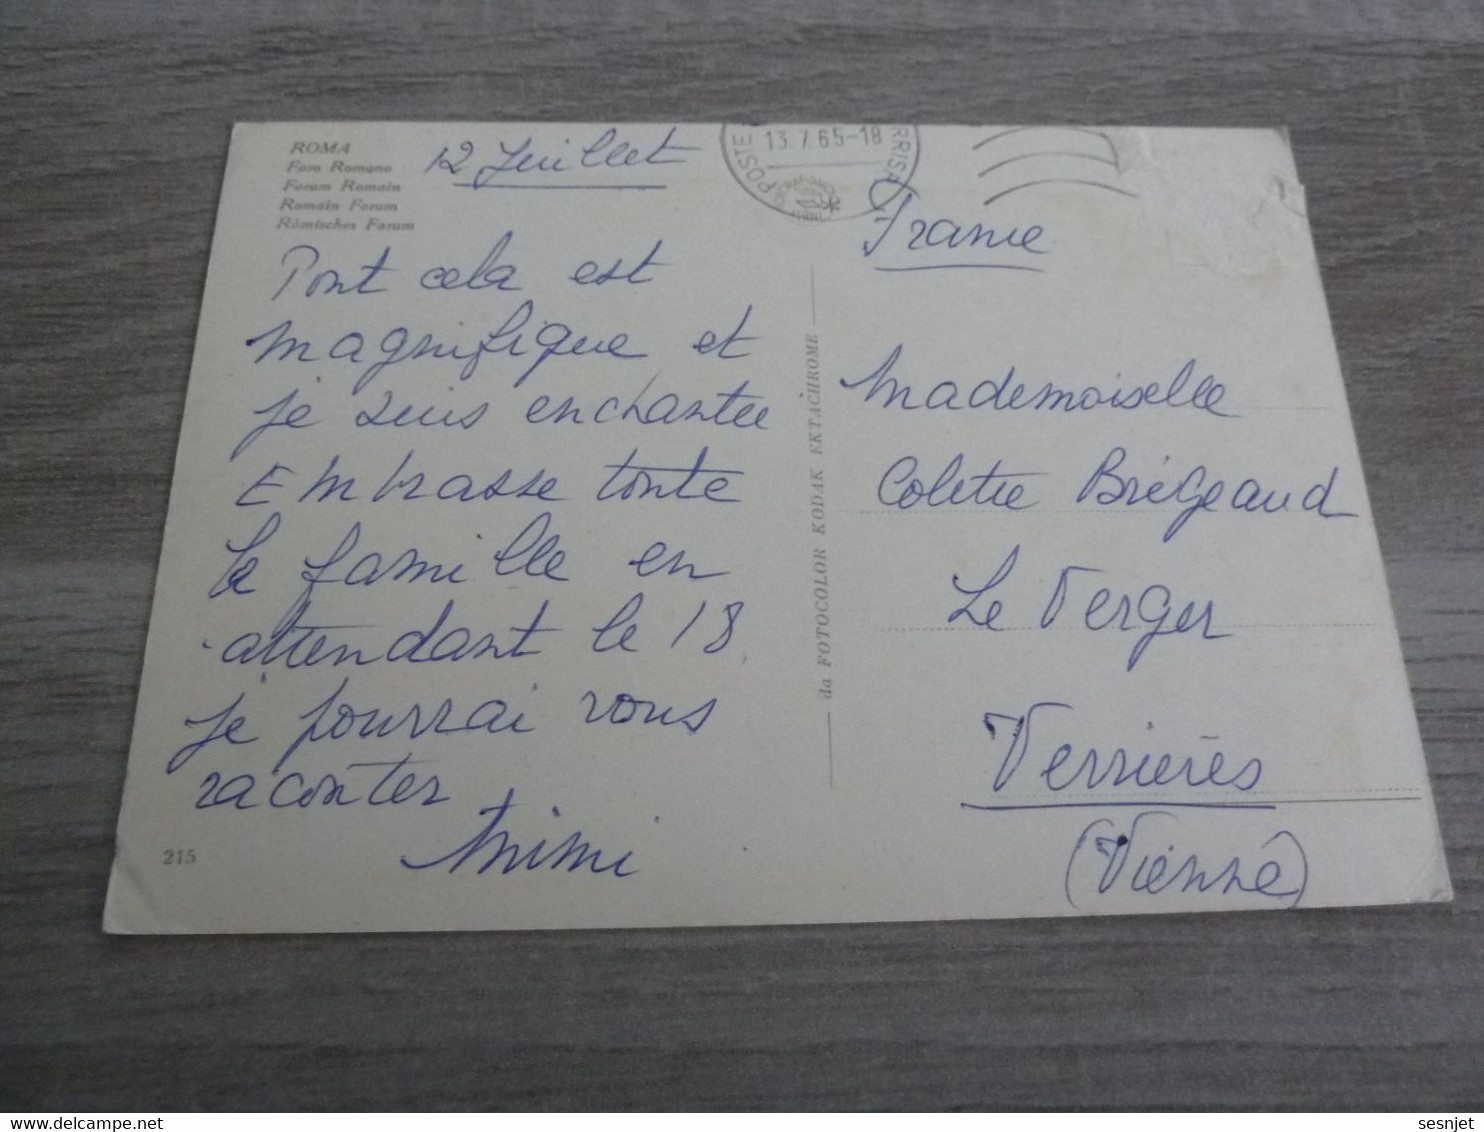 ROMA
Foro Romano
Forum Romain
Romain Forum
Römisches Forum
12 Juillet
POSTE
13.7.65-18
France
Tout cela est
magnifique et
je suis enchantée
Embrasse toute
la famille en
attendant le 18
je pourrai vous
raconter
Mimi
215
da FOTOCOLOR KODAK EKTACHROME
Mademoiselle
Colette Brégeaud
Le Verger
Verrières
(Vienne)
sesnjet